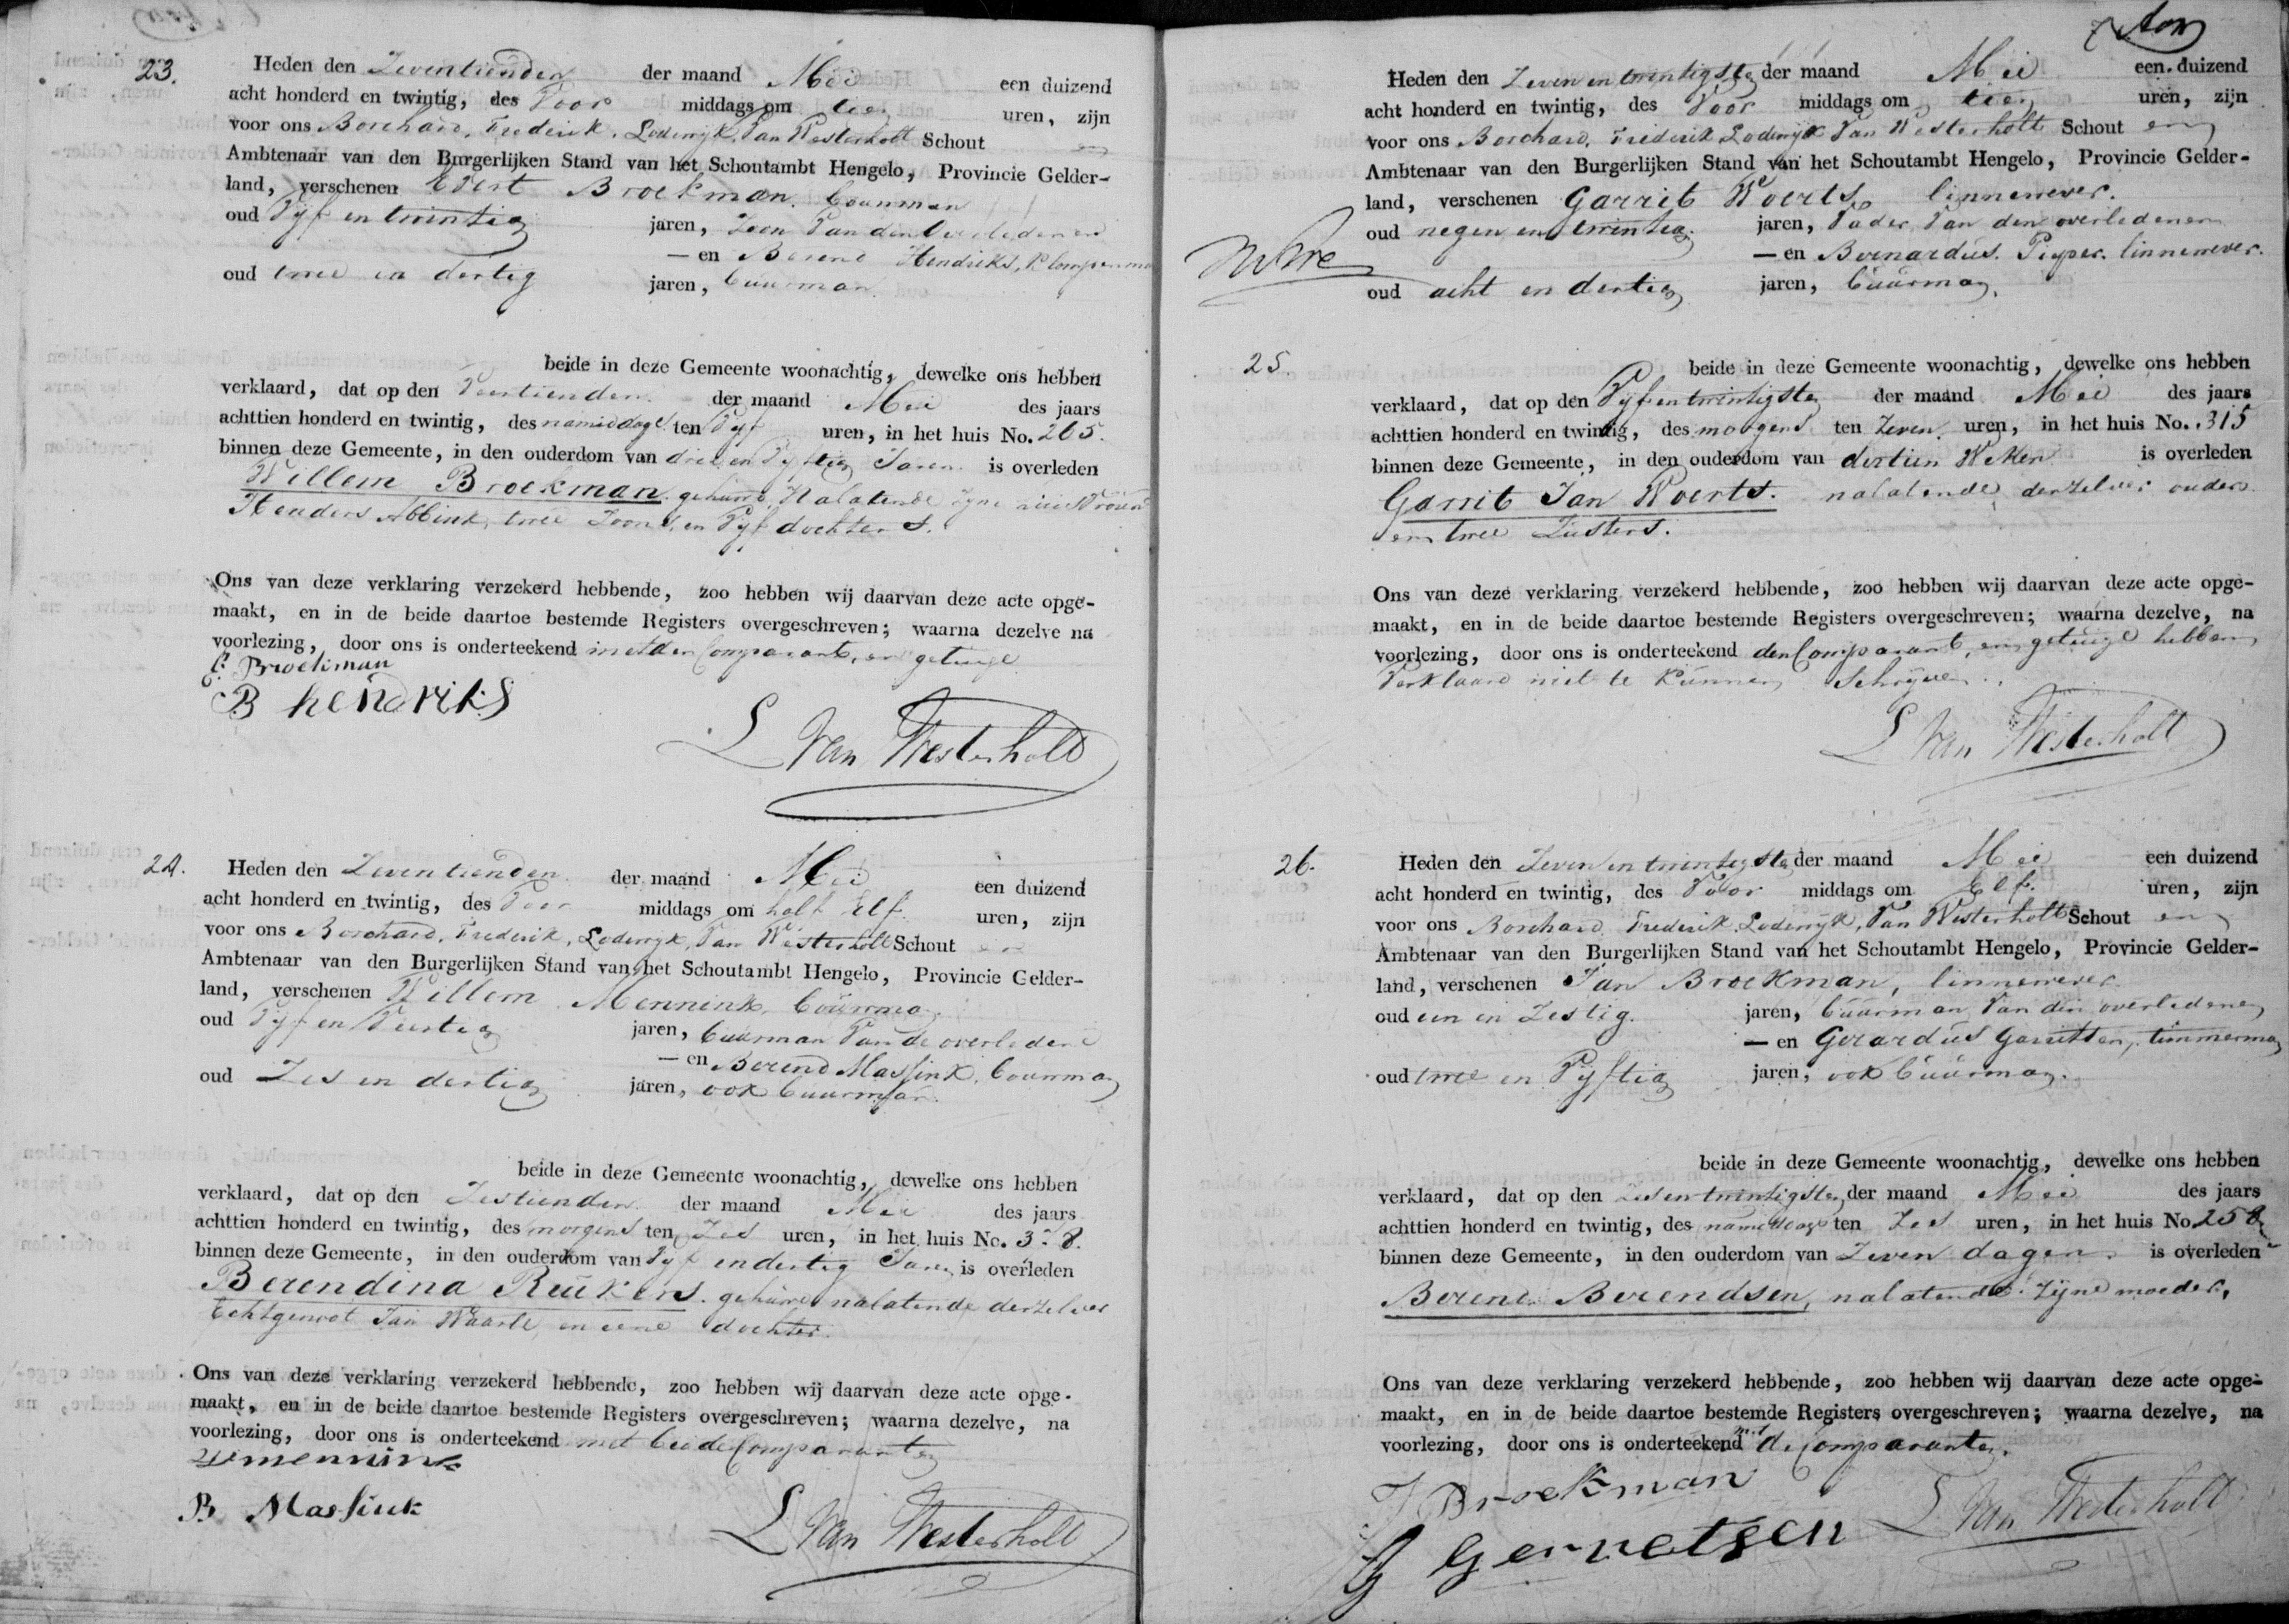 23.
Heden den Zeventienden der maand Mei een duizend
acht honderd en twintig, des Voor middags om tien uren, zijn
voor ons Borchard, Frederik, Lodewijk, Van Westerholt Schout en
Ambtenaar van den Burgerlijken Stand van het Schoutambt Hengelo, Provincie Gelder-
land, verschenen Evert Broekman. bouwman
oud Vijf en twintig jaren, Zoon Van den Overledenen
— en Berend Hendriks, Klompenma
oud twee en dertig jaren, buurman.
beide in deze Gemeente woonachtig, dewelke ons hebben
verklaard, dat op den Veertienden der maand Mei des jaars
achttien honderd en twintig, des namiddags ten Vijf uren, in het huis No. 265.
binnen deze Gemeente, in den ouderdom van drie en Vijftig Jaren is overleden
Willem Broekman. gehuwd, Nalatende zijne Vrouw
Henders Abbink, twee Zoons, en Vijf dochters.
Ons van deze verklaring verzekerd hebbende, zoo hebben wij daarvan deze acte opge-
maakt, en in de beide daartoe bestemde Registers overgeschreven; waarna dezelve na
voorlezing, door ons is onderteekend met den Comparant, en getuige
E. Broekman
B hendriks
L Van Westerholt
24.
Heden den Zeventienden der maand Mei een duizend
acht honderd en twintig, des Voor middags om half Elf uren, zijn
voor ons Borchard, Frederik, Lodewijk, Van Westerholt Schout en
Ambtenaar van den Burgerlijken Stand van het Schoutambt Hengelo, Provincie Gelder-
land, verschenen Willem Mennink, bouwman
oud Vijf en Veertig jaren, buurman Van de overledene
— en Berend Massink, bouwman
oud Zes en dertig jaren, ook buurman.
beide in deze Gemeente woonachtig, dewelke ons hebben
verklaard, dat op den Zestienden der maand Mei des jaars
achttien honderd en twintig, des morgens ten Zes uren, in het huis No.
binnen deze Gemeente, in den ouderdom van Vijf en dertig Jaren is overleden
Berendina Reukers. gehuwd nalatende derzelver
Echtgenoot Jan Waarle, en eene dochter.
Ons van deze verklaring verzekerd hebbende, zoo hebben wij daarvan deze acte opge-
maakt, en in de beide daartoe bestemde Registers overgeschreven; waarna dezelve, na
voorlezing, door ons is onderteekend met beide Comparanten
W mennink
B Massink
L Van Westerholt
Heden den Zeven en twintigsten der maand Mei een duizend
acht honderd en twintig, des Voor middags om tien uren, zijn
voor ons Borchard, Frederik Lodewijk Van Westerholt Schout en
Ambtenaar van den Burgerlijken Stand van het Schoutambt Hengelo, Provincie Gelder-
land, verschenen Garrit Woerts, linnewever.
oud negen en twintig. jaren, Vader Van den overledenen
— en Bernardus. Pieper. linnewever.
oud acht en dertig jaren, buurman.
25.
beide in deze Gemeente woonachtig, dewelke ons hebben
verklaard, dat op den Vijf en twintigsten der maand Mei des jaars
achttien honderd en twintig, des morgens ten Zeven. uren, in het huis No. 315
binnen deze Gemeente, in den ouderdom van dertien Weken is overleden
Garrit Jan Woerts. nalatende derzelver ouders
en twee Zusters.
Ons van deze verklaring verzekerd hebbende, zoo hebben wij daarvan deze acte opge-
maakt, en in de beide daartoe bestemde Registers overgeschreven; waarna dezelve, na
voorlezing, door ons is onderteekend den Comparant, en getuige hebben
Verklaard niet te kunnen Schrijven.
L Van Westerholt
26.
Heden den Zeven en twintigsten der maand Mei een duizend
acht honderd en twintig, des Voor middags om Elf. uren, zijn
voor ons Borchard Frederik, Lodewijk, Van Westerholt Schout en
Ambtenaar van den Burgerlijken Stand van het Schoutambt Hengelo, Provincie Gelder-
land, verschenen Jan Broekman, linnewever
oud een en Zestig. jaren, buurman Van den overledenen
— en Gerardus Garritsen, timmerman
oud twee en Vijftig jaren, ook buurman.
beide in deze Gemeente woonachtig, dewelke ons hebben
verklaard, dat op den Zes en twintigsten der maand Mei des jaars
achttien honderd en twintig, des namiddags ten Zes uren, in het huis No. 258
binnen deze Gemeente, in den ouderdom van Zeven dagen. is overleden
Berend Berendsen, nalatende Zijne moeder,
Ons van deze verklaring verzekerd hebbende, zoo hebben wij daarvan deze acte opge-
maakt, en in de beide daartoe bestemde Registers overgeschreven; waarna dezelve, na
voorlezing, door ons is onderteekend met de Comparanten.
J Broekman
G Gerretsen
L Van Westerholt